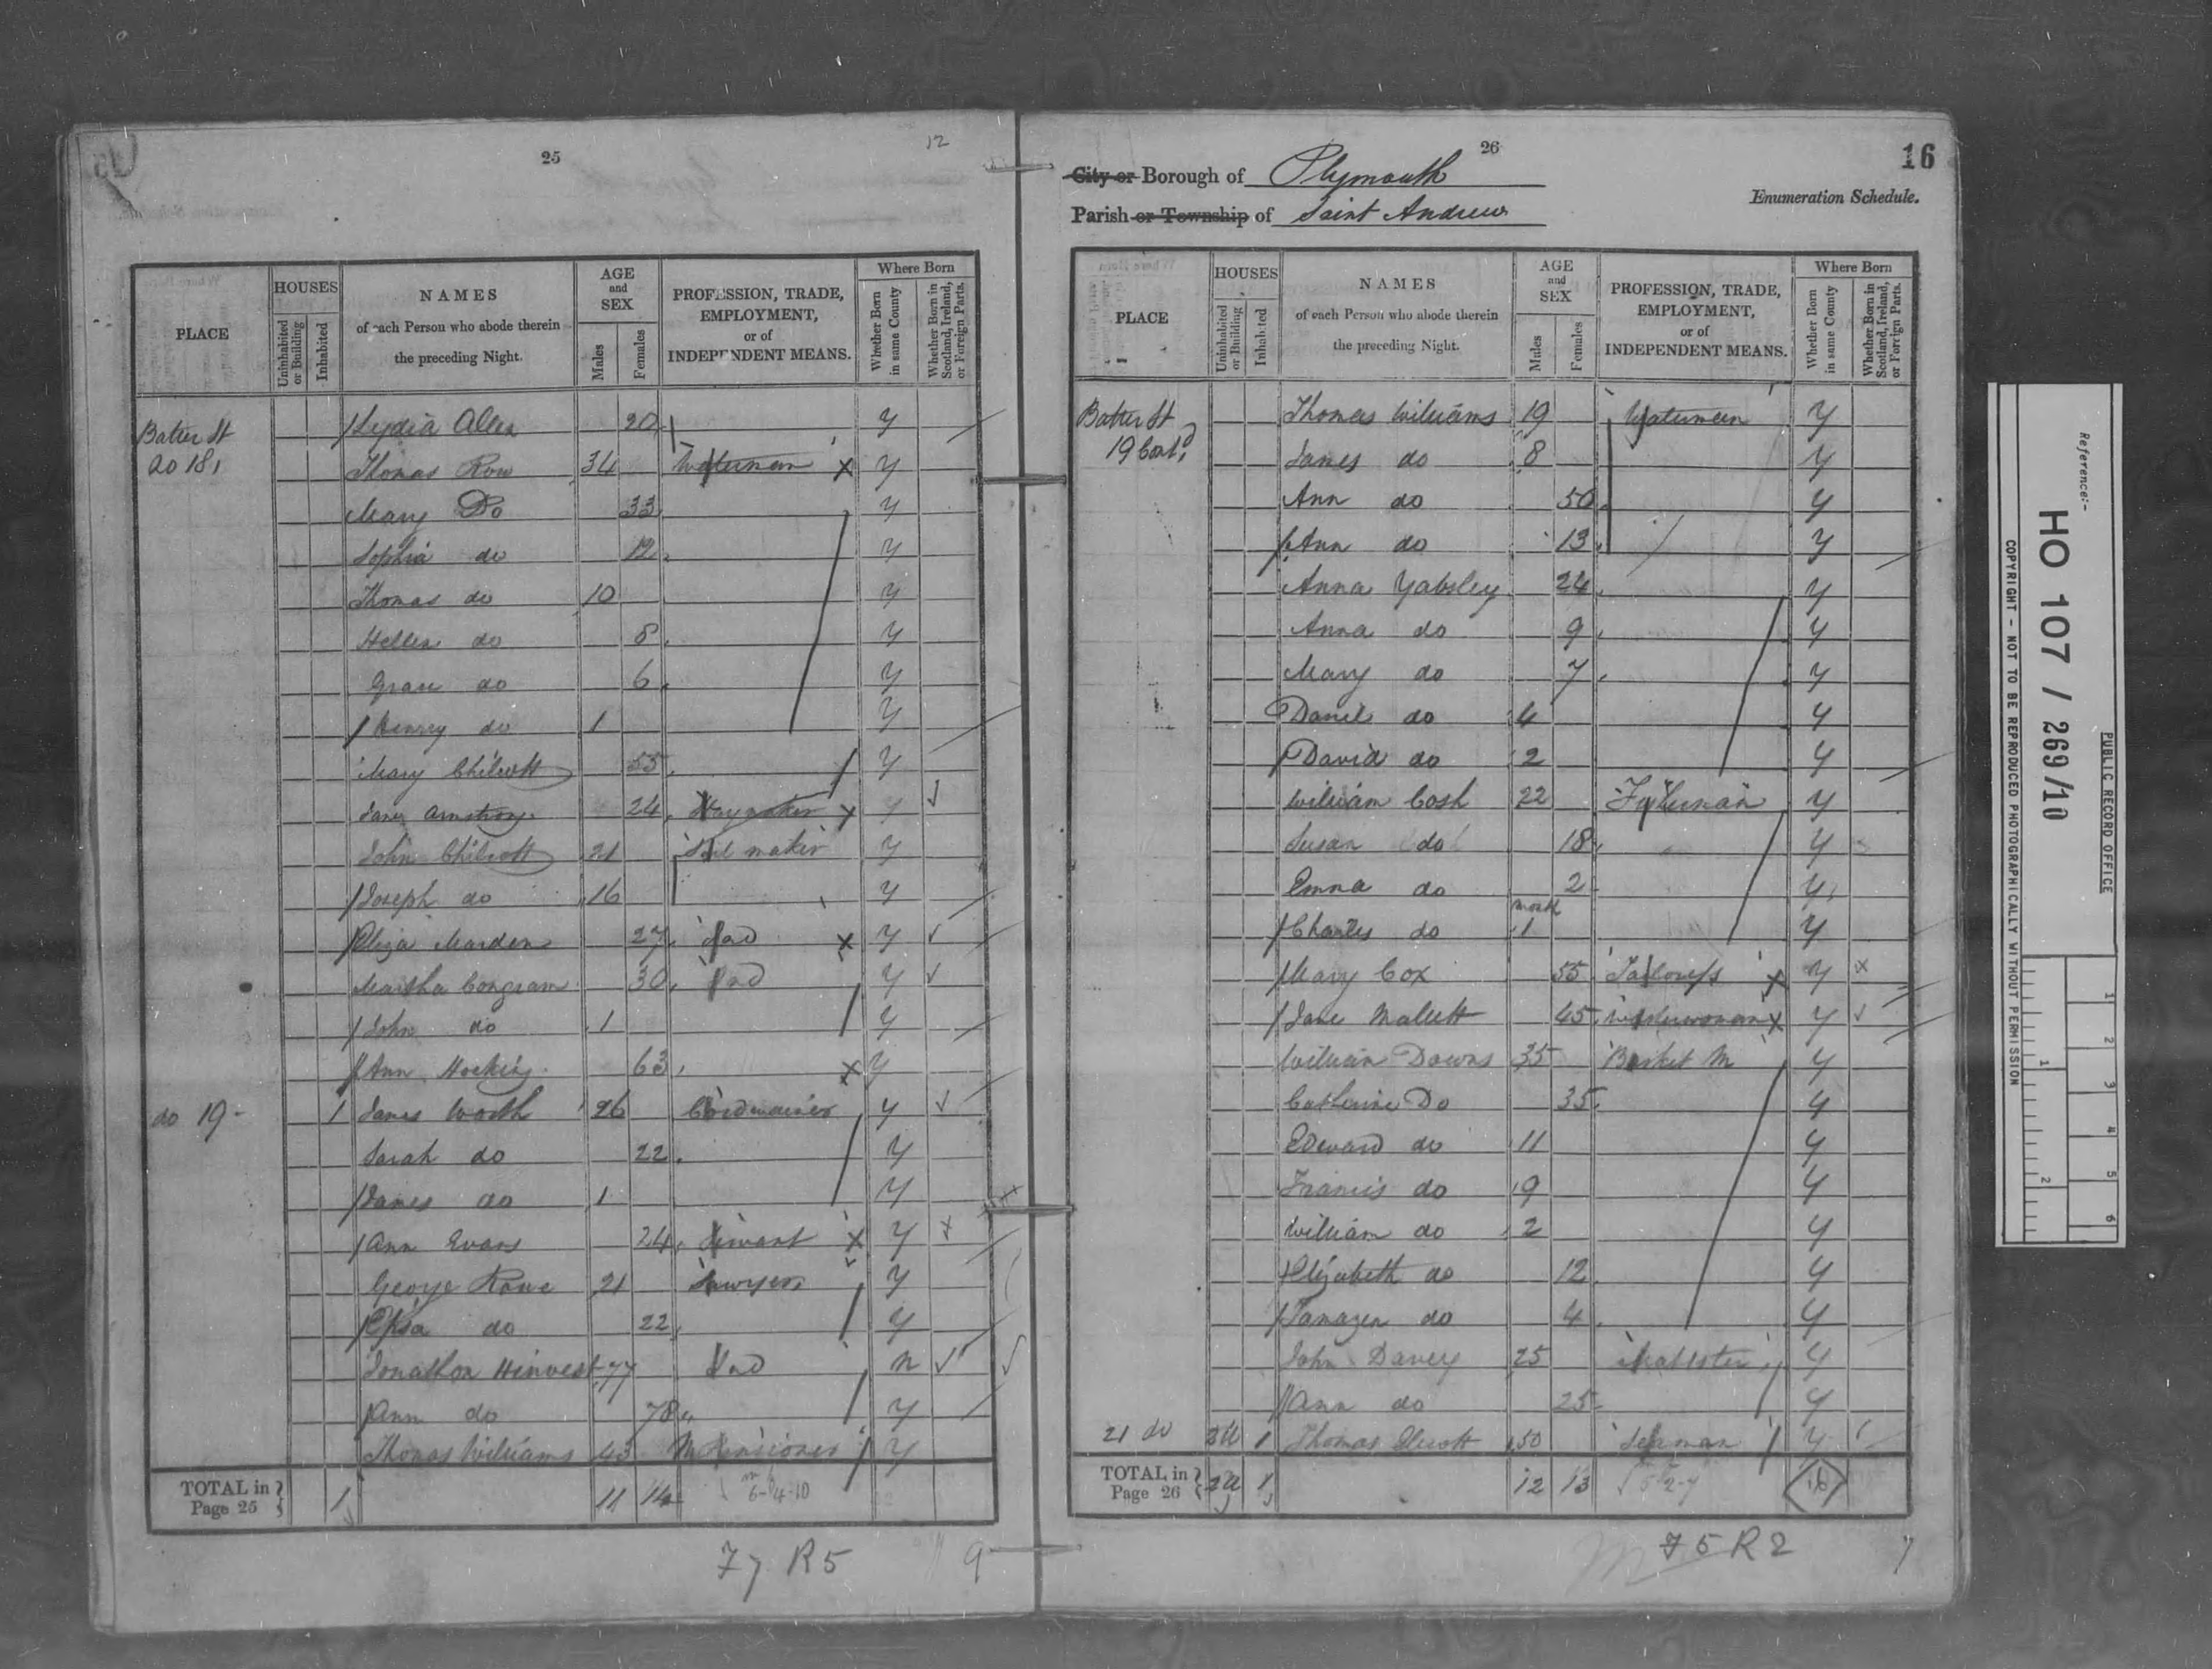 25
12
PLACE
HOUSES
Uninhabited or Building
Inhabited
NAMES
of each Person who abode therein
the preceding Night.
AGE
and
SEX
Males
Females
PROFESSION, TRADE,
EMPLOYMENT,
or of
INDEPENDENT MEANS.
Where Born
Whether Born in same County
Whether Born in Scotland, Ireland, or Foreign Parts.
Batter St Lydia Allen 20 y
do 18 Thomas Row 34 Waterman y
Mary Do 33 y
Sophia do 12 y
Thomas do 10 y
Hellen do 8 y
Grace do 6 y
Henry do 1 y
Mary Chilcott 55 y
Jane Armstrong 24 Staymaker y
John Chilcott 21 Sail maker y
Joseph do 16 y
Eliza Marden 27 Ind y
Martha Congram 30 Ind y
John do 1 y
Ann Hocking 63 y
do 19 1 James Worth 26 Cordwainer y
Sarah do 22 y
James do 1 y
Ann Evans 24 Servant y
George Rowe 21 Sawyer y
Eliza do 22 y
Jonathon Hinvest 77 Ind n
Ann do 78 y
Thomas Williams 43 M Pensioner y
TOTAL in Page 25 1 11 14 6-4-10
77 R5
9
26
16
City or Borough of Plymouth
Enumeration Schedule.
Parish or Township of Saint Andrew
PLACE
HOUSES
Uninhabited or Building
Inhabited
NAMES
of each Person who abode therein
the preceding Night.
AGE
and
SEX
Males
Females
PROFESSION, TRADE,
EMPLOYMENT,
or of
INDEPENDENT MEANS.
Where Born
Whether Born in same County
Whether Born in Scotland, Ireland, or Foreign Parts.
Batter St Thomas Williams 19 Waterman y
19 Cont James do 8 y
Ann do 50 y
Ann do 13 y
Anna Yabsley 24 y
Anna do 9 y
Mary do 7 y
Daniel do 4 y
David do 2 y
William Cosh 22 Fisherman y
Susan do 18 y
Emma do 2 y
month
Charles do 1 y
Mary Cox 55 Tailoress y
Jane Mallett 45 Washerwoman y
William Downs 35 Basket M y
Catherine Do 35 y
Edward do 11 y
Francis do 9 y
William do 2 y
Elizabeth do 12 y
Tamazen do 4 y
John Davey 25 y
Ann do 25 y
21 do 2U 1 Thomas 50 Seaman y
TOTAL in Page 26 2U 1 12 13 5-2-7 16
75 R2
7
Reference:-
HO 107 / 269/10
PUBLIC RECORD OFFICE
COPYRIGHT - NOT TO BE REPRODUCED PHOTOGRAPHICALLY WITHOUT PERMISSION
1 2 3 4 5 6
1 2